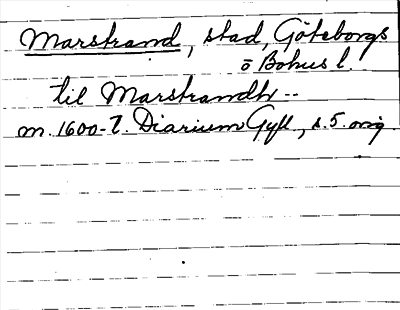 Marstrand, stad, Göteborgs
o Bohus l.
til Marstrandh --
m. 1600-t. Diarium Gyll., s. 5. orig.